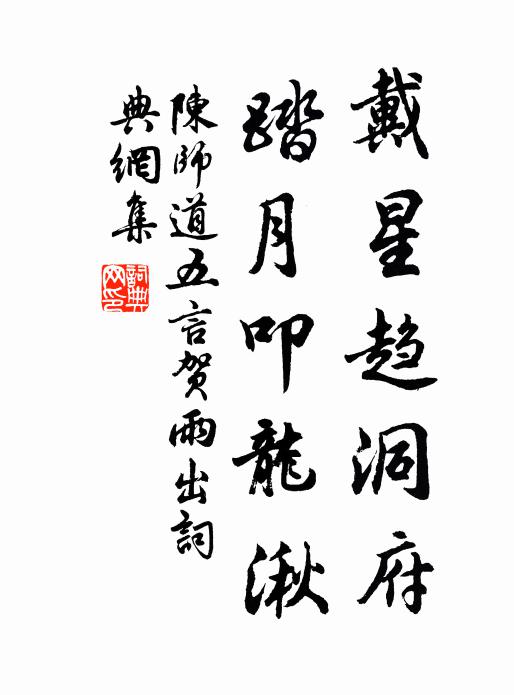 戴星趋洞府
踏月叩龍湫
陳師道五言贺雨出詞
典網集
詞典网印